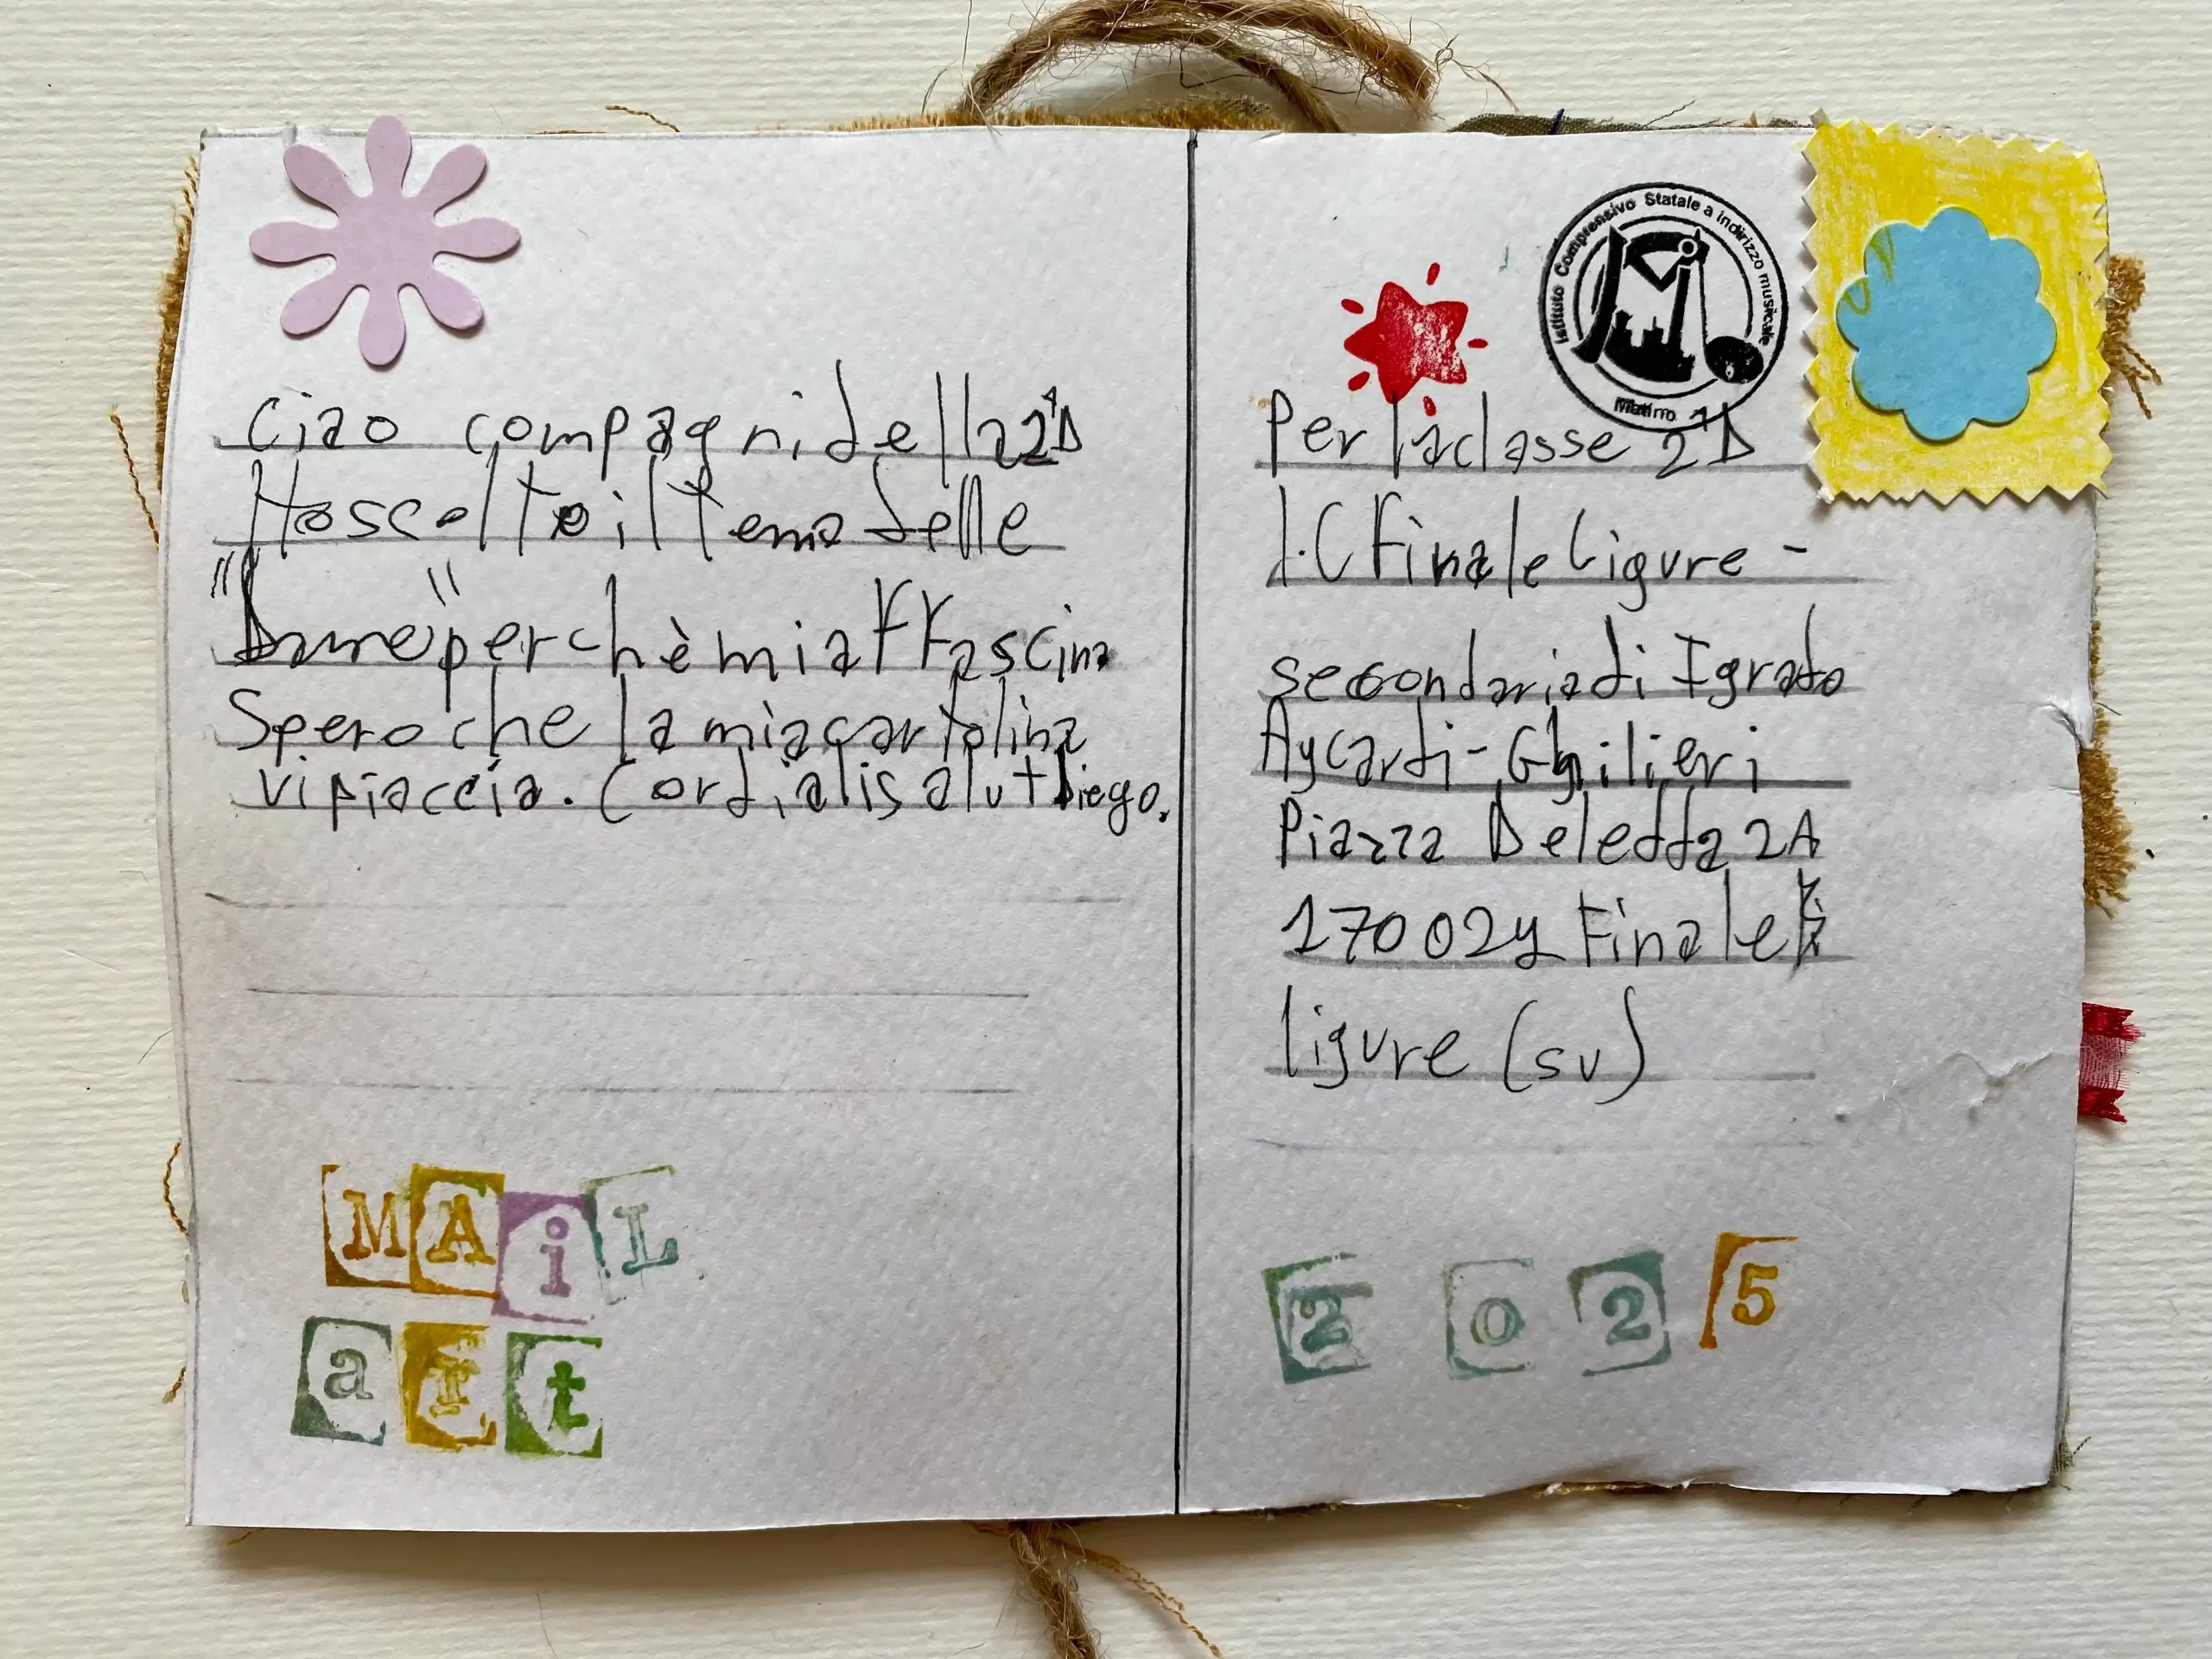 Ciao compagni della 2ᴬD
Ho scelto il tema delle
"Dune" perchè mi affascina
Spero che la mia cartolina
vi piaccia. Cordiali saluti Diego.
MAiL
art
Istituto Comprensivo Statale a indirizzo musicale
Matino
Per la classe 2ᴬD
I.C Finale Ligure -
secondaria di I grado
Aycardi - Ghilieri
Piazza Deledda 2A
17002y Finale
ligure (sv)
2025